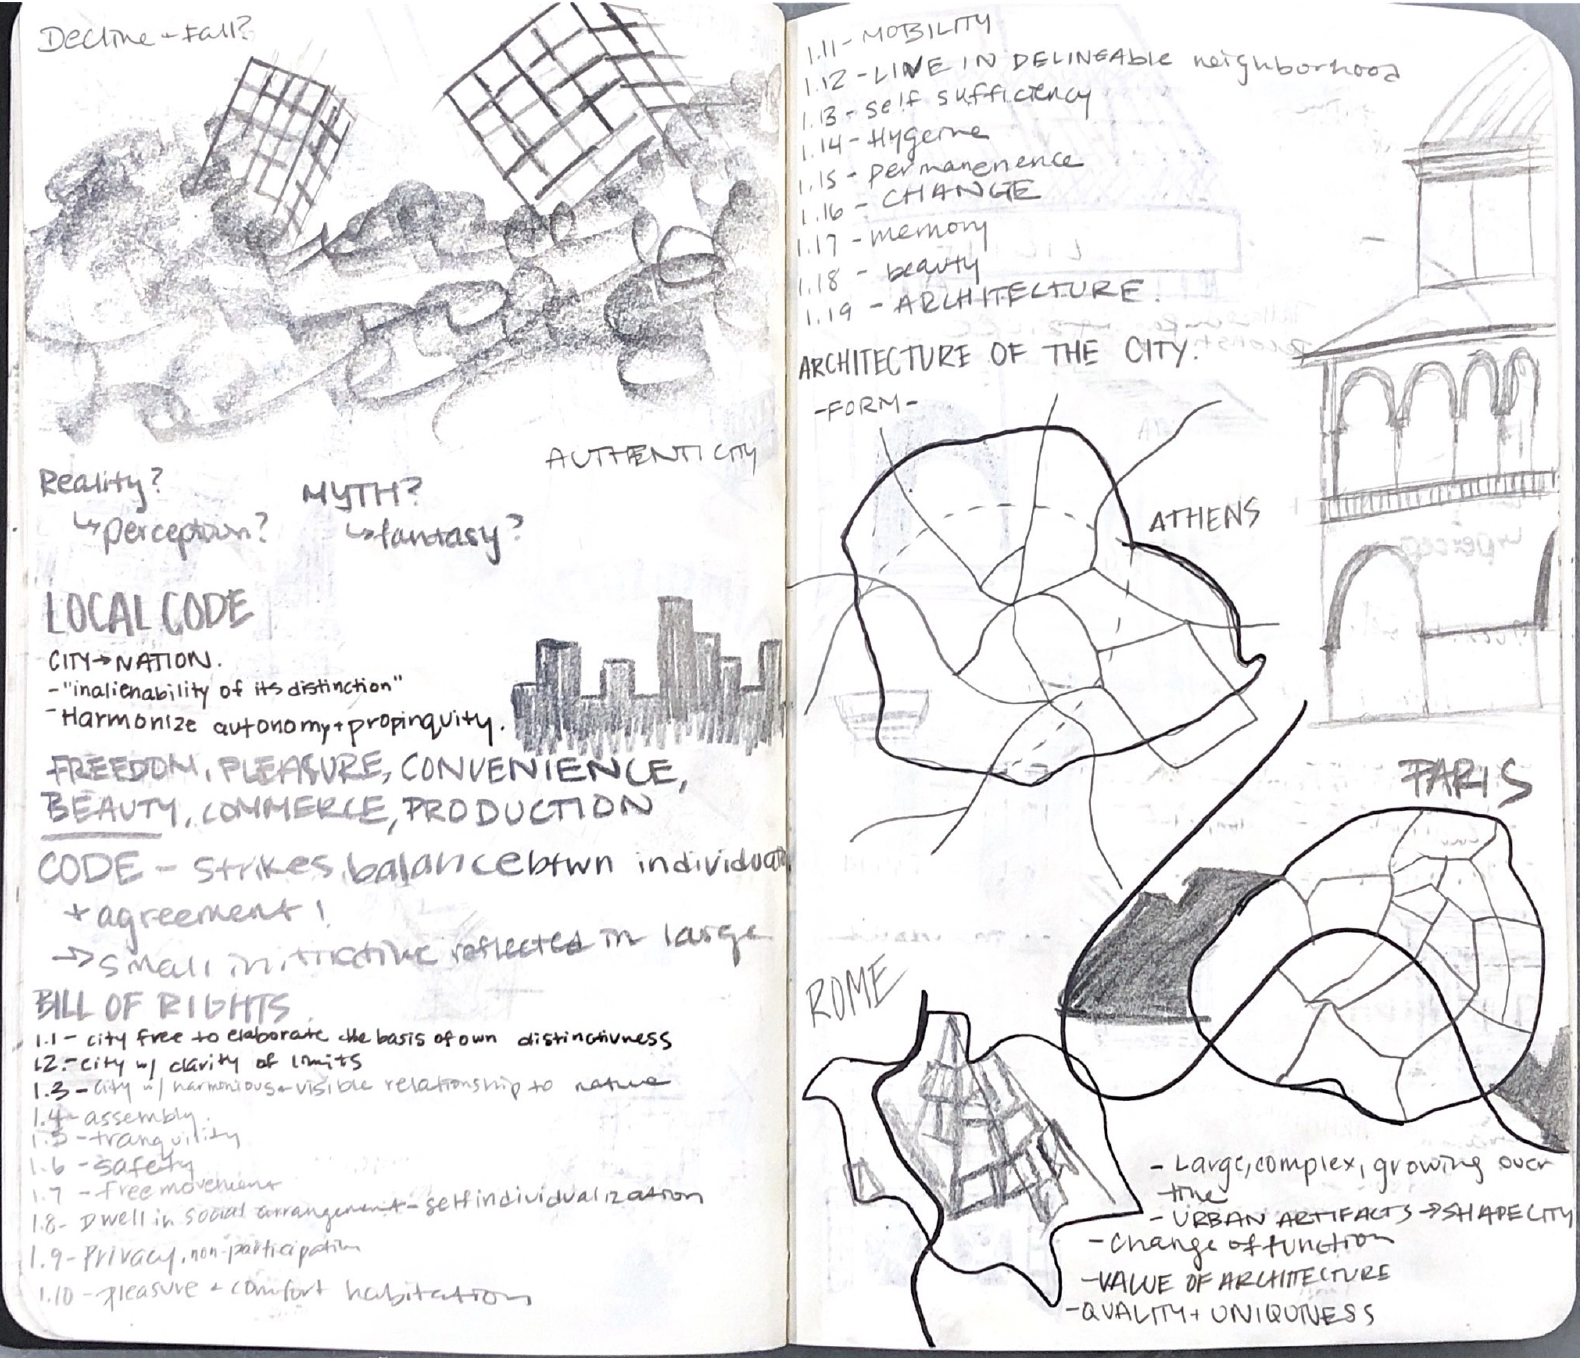 Decline + Fall?
AUTHENTICITY
Reality?
↳perception?
MYTH?
↳fantasy?
LOCAL CODE
CITY→NATION.
-"inalienability of its distinction"
-Harmonize autonomy+propinquity.
FREEDOM, PLEASURE, CONVENIENCE,
BEAUTY, COMMERCE, PRODUCTION
CODE - Strikes balance btwn individual
+ agreement!
→ small initiative reflected in large
BILL OF RIGHTS.
1.1- city free to elaborate the basis of own distinctivness
1.2- city w/ clarity of limits
1.3- city w/ harmonious + visible relationship to nature
1.4- assembly.
1.5- tranquility
1.6- safety
1.7- free movement
1.8- Dwell in social arrangement - self individualization
1.9- Privacy, non-participation
1.10- pleasure + comfort habitation
1.11- MOBILITY
1.12- LIVE IN DELINEABLE neighborhood
1.13- self sufficiency
1.14- Hygeine
1.15- permanenence
1.16- CHANGE
1.17- memory
1.18- beauty
1.19- ARCHITECTURE.
ARCHITECTURE OF THE CITY.
-FORM-
ATHENS
PARIS
ROME
- Large, complex, growing over
time
- URBAN ARTIFACTS → SHAPE CITY
- Change of function
- VALUE OF ARCHITECTURE
- QUALITY + UNIQUNESS